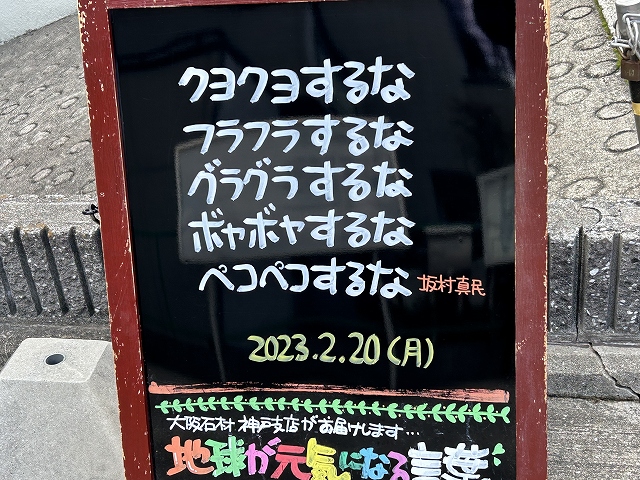 クヨクヨするな
フラフラするな
グラグラするな
ボヤボヤするな
ペコペコするな 坂村真民
2023.2.20(月)
大阪石材 神戸支店がお届けします…
地球が元気になる言葉